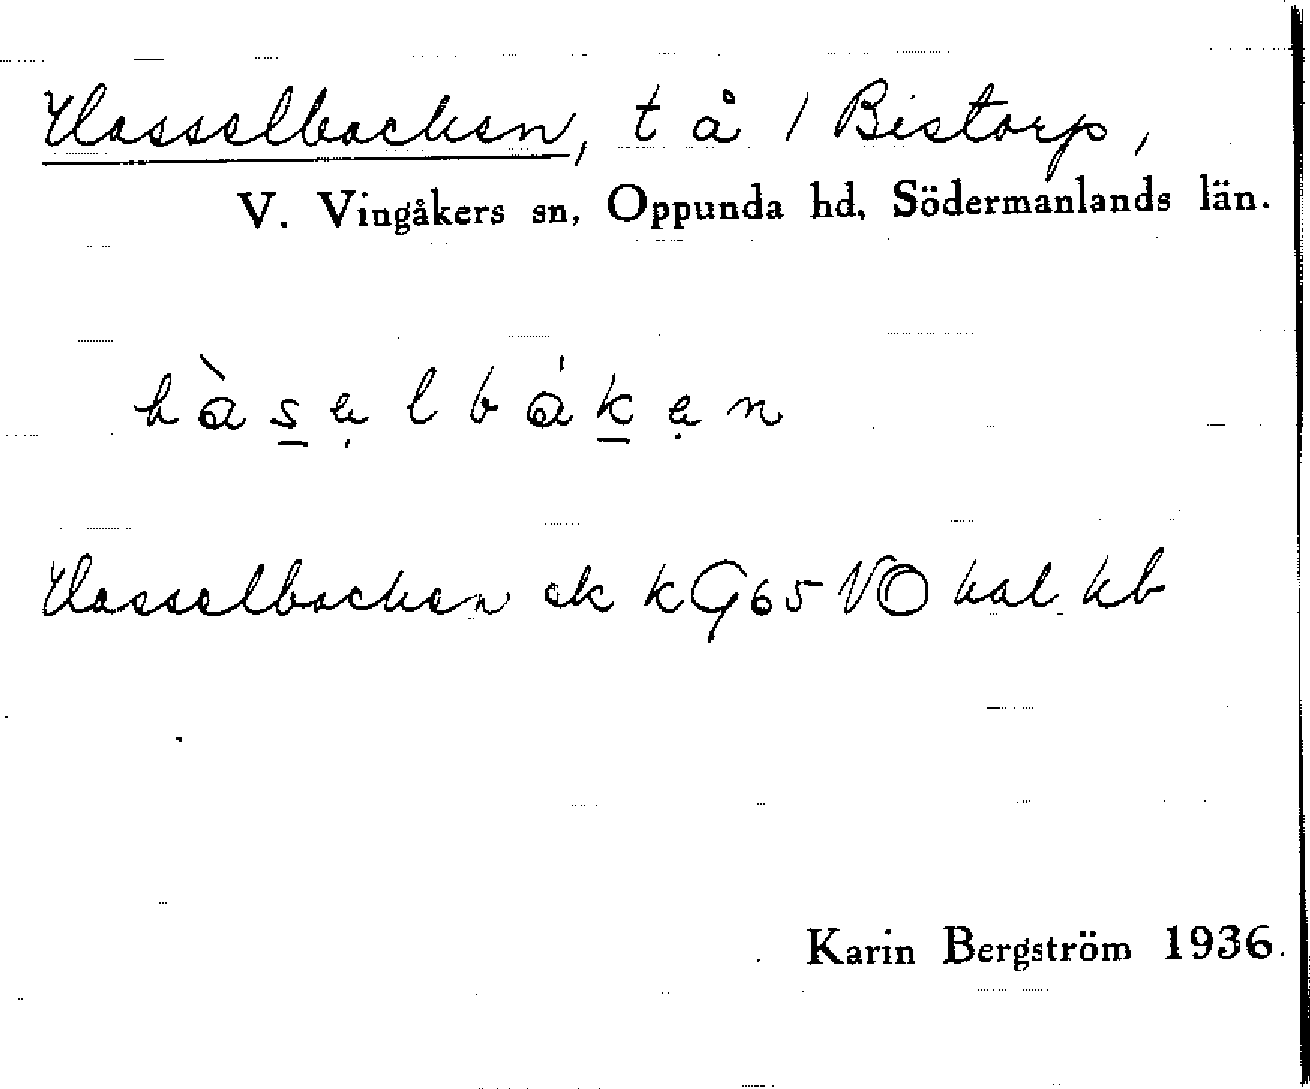 Hasselbacken, t å 1 Bistorp,
V. Vingåkers sn, Oppunda hd, Södermanlands län.
hàs̲ẹlbák̲ẹn
Hasselbacken ek kG65 NO hal hb
Karin Bergström 1936.